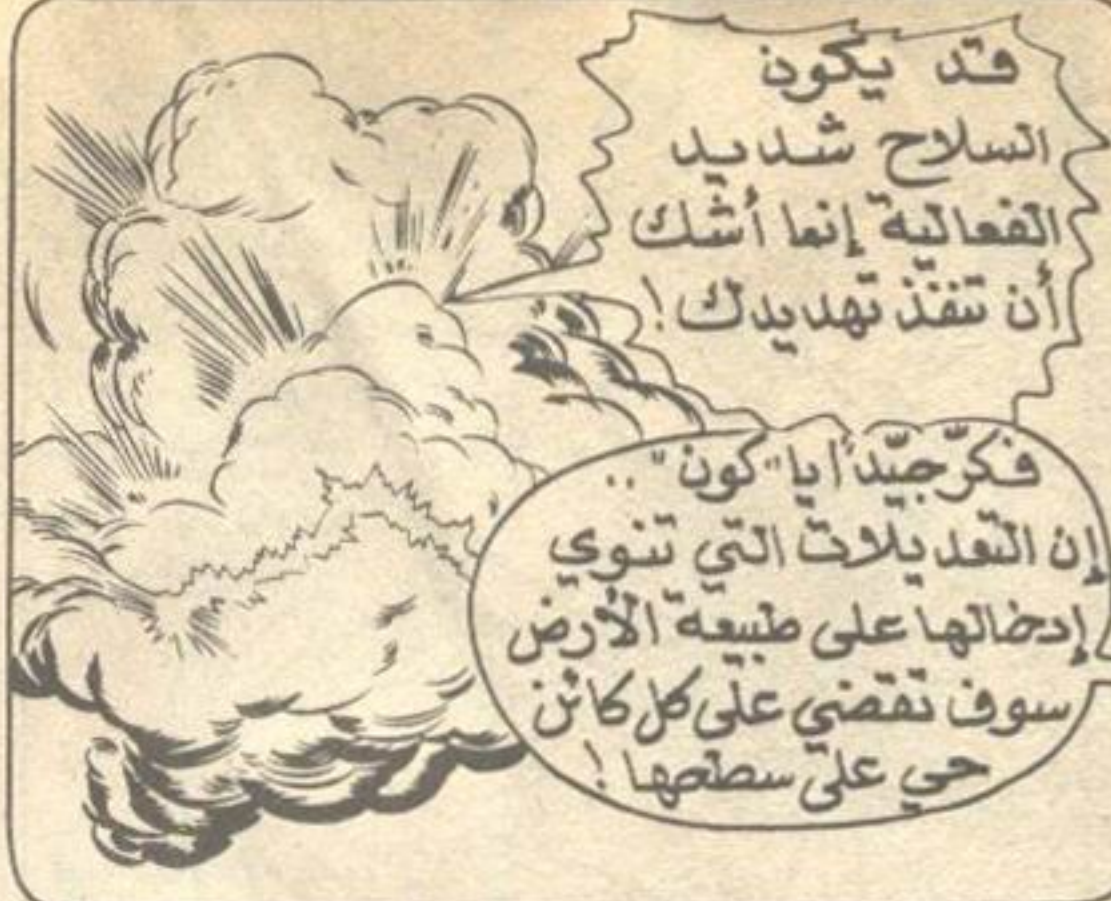 قد يكون
السلاح شديد
الفعالية إنما أشك
أن تنفّذ تهديدك!
فكّر جيّداً يا "كون"..
إن التعديلات التي تنوي
إدخالها على طبيعة الأرض
سوف تقضي على كل كائن
حي على سطحها!